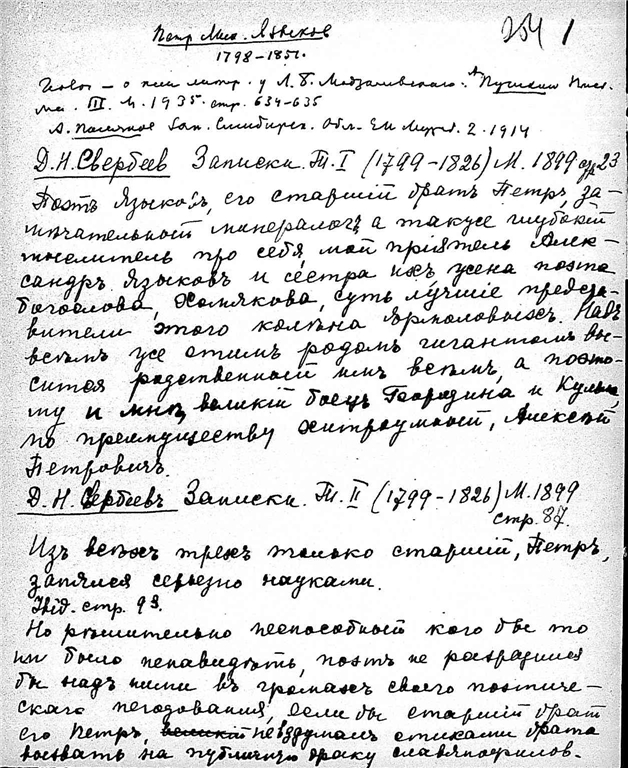 Петр Мих. Языков
254 1
1798–1851.
о нем литр. у Л. Б. Модзалевского. Пушкин Пись-
ма. III. М. 1935. стр. 634–635
Симбирск. Обл. 2. 1914
Д. Н. Свербеев Записки. Т. I (1799–1826) М. 1899 стр 23
Поэтъ Языковъ, его старшій братъ Петръ, за-
мѣчательный минералогъ, а также глубокій
мыслитель про себя, мой пріятель Алек-
сандръ Языковъ и сестра ихъ жена поэта
богослова, Хомякова, суть лучшіе предста-
вители этого колѣна Ярмоловыхъ. Надъ
всѣмъ же этимъ родомъ гигантомъ вы-
сится родственный имъ всѣмъ, а пото-
му и мнѣ, великій боецъ Бородина и Кульма,
по преимуществу хитроумный, Алексѣй
Петровичъ.
Д. Н. Свербеевъ Записки. Т. II (1799–1826) М. 1899
стр. 87.
Изъ всѣхъ трехъ только старшій, Петръ,
занялся серьезно науками.
Ibid. стр. 93.
Но рѣшительно неспособный кого бы то
ни было ненавидѣть, поэтъ не разразился
бы надъ ними въ громахъ своего поэтиче-
скаго негодованія, если бы старшій братъ
его Петръ, великій невздумалъ стихами брата
вызвать на публичную драку славянофиловъ.